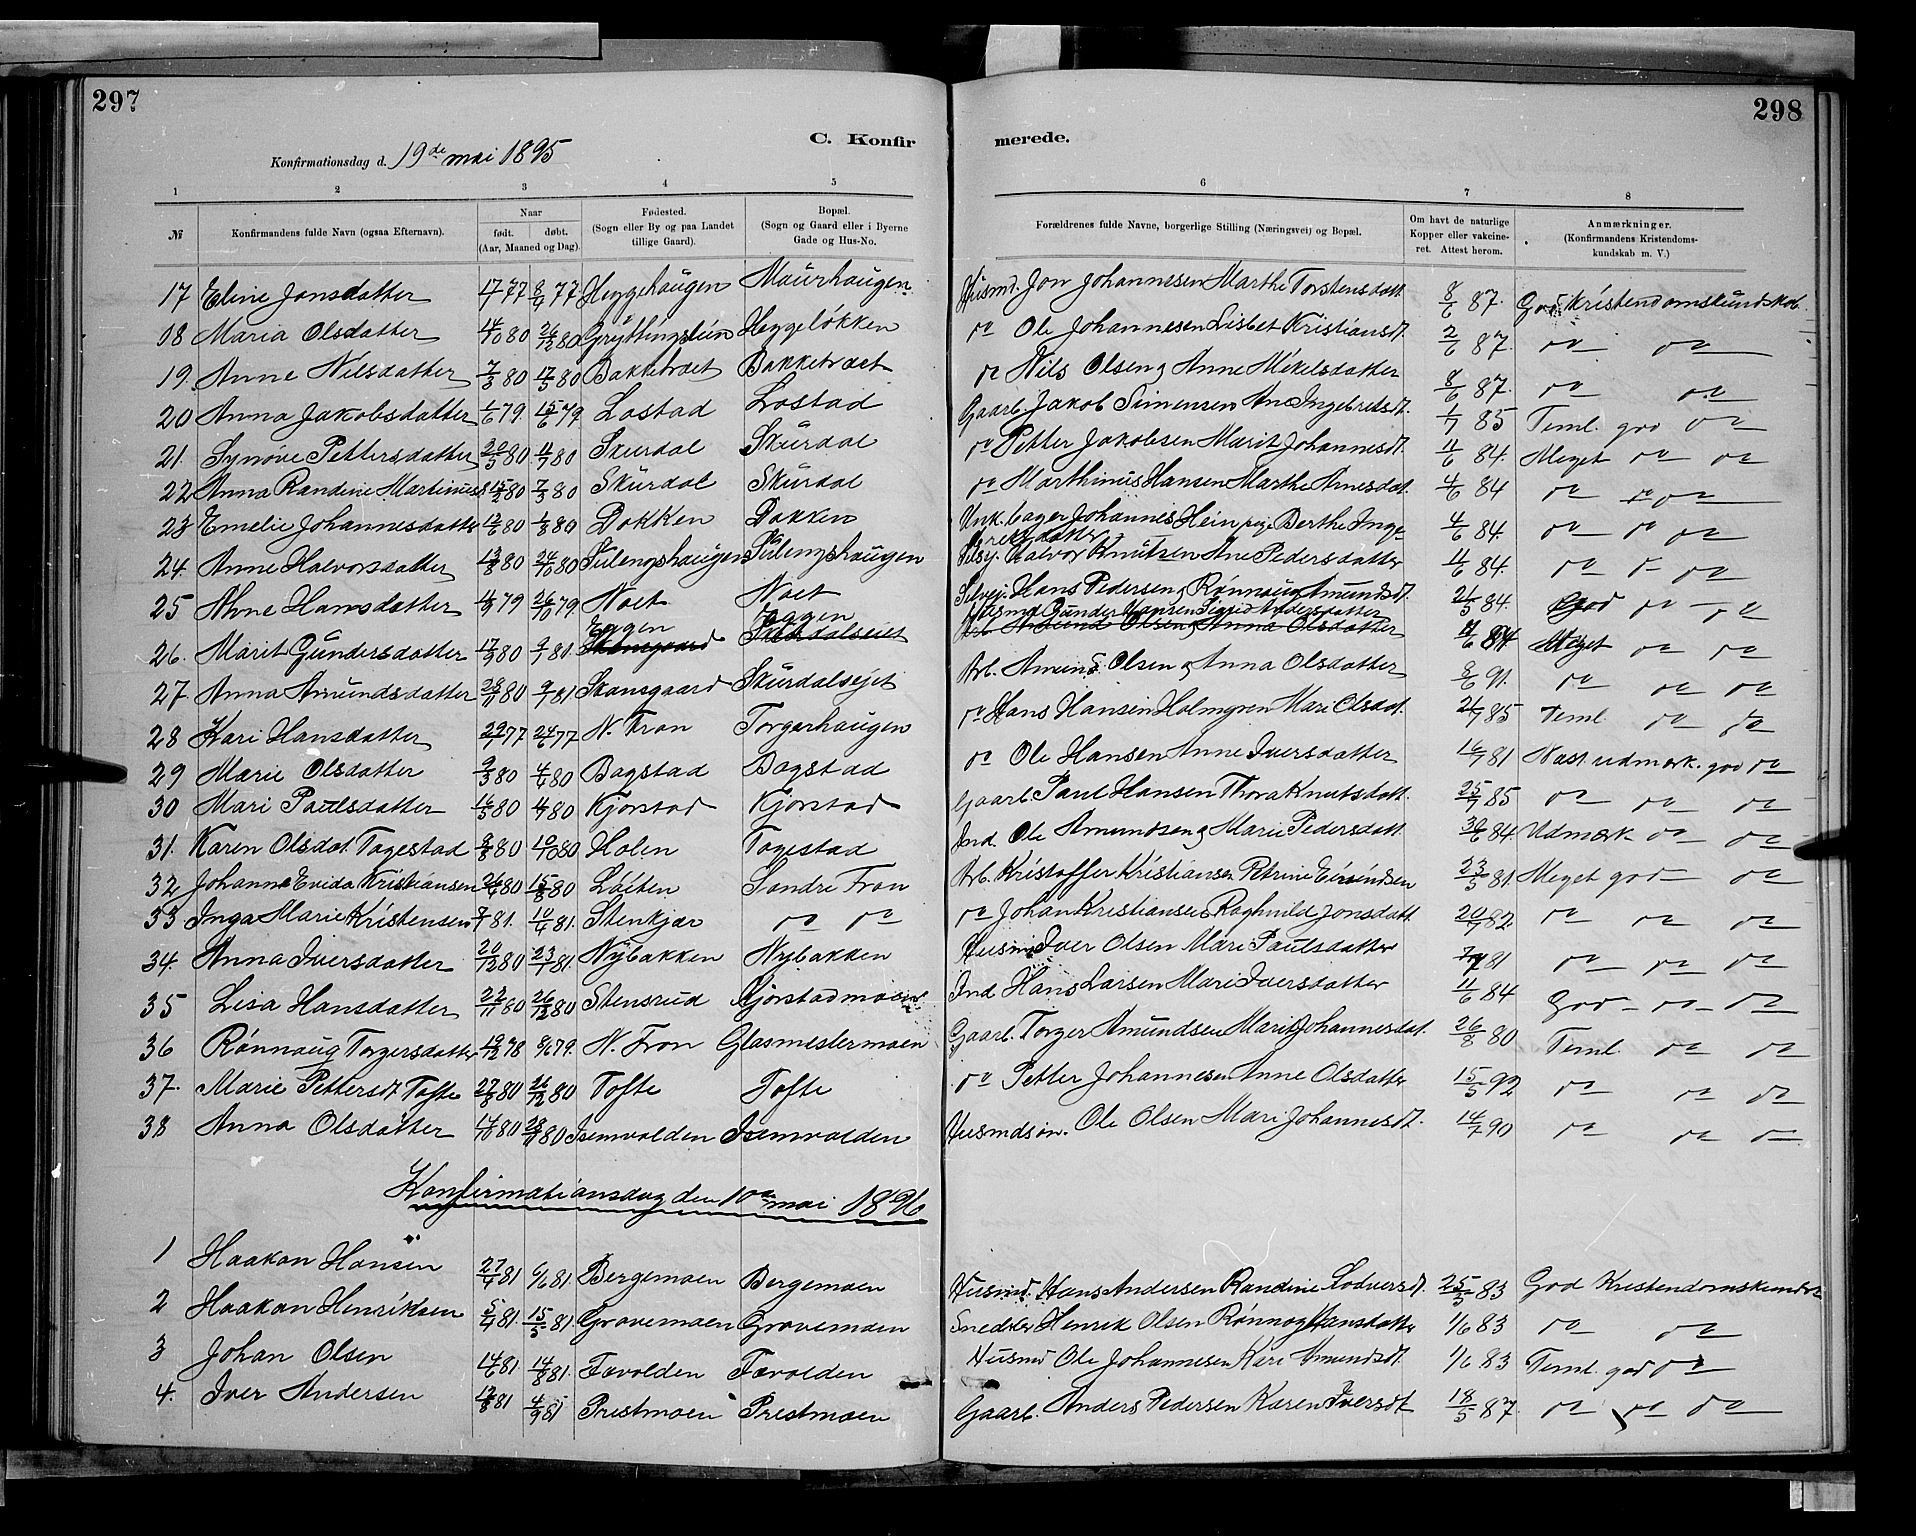 297
298
C. Konfir merede.
Konfirmationsdag d. 19de mai 1895
1 2 3 4 5 6 7 8
№ Konfirmandens fulde Navn (ogsaa Efternavn). Naar født. døbt. (Aar, Maaned og Dag). Fødested. (Sogn eller By og paa Landet tillige Gaard). Bopæl. (Sogn og Gaard eller i Byerne Gade og Hus-No. Forældrenes fulde Navne, borgerlige Stilling (Næringsvei) og Bopæl. Om havt de naturlige Kopper eller vakcineret. Attest herom. Anmærkninger. (Konfirmandens Kristendomskundskab m. V.)
17 Eline Jonsdatter 77 77 Heggehaugen Maurhaugen Husmd. Jon Johannesen Marthe Torstensdatt 8/6 87. God Kristendomskundskab
18 Maria Olsdatter 4/10 80 26/12 80 Heggeløkken do Ole Johannesen Lisbet Kristiansdt. 2/6 87. do do
19. Anne Nilsdatter 7/3 80 17/5 80 Bakketræet Bakketræet do Nils Olsen, Anne Mikelsdatter 8/6 87. do do
20 Anna Jakobsdatter 1/6 79. 15/6 79 Lostad Lostad Gaarb. Jakob Simensen Ane Ingebretsdt. 1/7 85 Teml. god do
21. Synøve Pettersdatter 80 80 Skurdal Skurdal do Petter Jakobsen Marit Johannesdt. 11/6 84. Meget do do
22 Anna Randine Martinus 15/2 80 7/3 80 Skurdal Skurdal do Marthinus Hansen Marthe Arnesdat. 4/6 84 do do do
23 Emelie Johannesdatter 80 1/8 80 Dokken Dokken Johannes Berthe Inge- 4/6 84. do do do
bretsdatter
24. Anne Halvorsdatter 13/8 80 24/10 80 Halvor Knutsen Ane Pedersdatter 11/6 84. do do do
25 Ahne Hansdatter 79 26/10 79 Noet Noet Selvej. Hans Pedersen, Rønnaug Amundsdt. 21/5 84. God do do
26. Marit Gundersdatter 17/9 80 9/1 81. Eggen Eggen Husmd Gunder Hansen Sigrid Andersdatter 84 Meget do do
27 Anna Amundsdatter 28/11 80 9/1 81 Stansgaard Skurdalsejet Arb. Amund Olsen, Anna Olsdatter 8/6 91. do do do
28 Kari Hansdatter 77 24/6 77 N. Fron Torgerhaugen do Hans Hansen Holmgren Mari Olsdat. 85 Teml. do do
29 Marie Olsdatter 9/3 80 4/6 80 Bagstad Bagstad do Ole Hansen Anne Iversdatter 81 Næst. udmærk. god do
30 Mari Paulsdatter 16/5 80 80 Kjørstad Kjørstad Gaarb. Paul Hansen Thora Knutsdatt. 25/7 85 do do do
31. Karen Olsdat. Togestad 80 10/10 80 Holen Togestad Ind. Ole Amundsen, Marie Pedersdatt. 30/6 84 Udmærk do do
32 Johanne Evida Kristiansen 80 80 Løiten Søndre Fron Arb. Kristoffer Kristiansen Petrine 23/5 81 Meget god do
33 Inga Marie Kristensen 81. 10/4 81. Stenkjær do do do Johan Kristiansen Raghnild Jonsdatt 82 do do do
34. Anna Iversdatter 20/12 80 23/1 81. Nybakken Nybakken Husmd Iver Olsen Mari Paulsdatter 81 do do do
35 Lisa Hansdatter 22/11 80 26/12 80 Stensrud Kjørstadmoen Ind Hans Larsen Mari Iversdatter 11/6 84 God do do
36 Rønnaug Torgersdatter 19/12 78 79. N. Fron Glasmestermoen Gaarb. Torger Amundsen Marit Johannesdat. 26/8 80 Teml. do do
37. Marie Pettersdt Tofte 80 26/12 80 Tofte Tofte do Petter Johannesen Anne Olsdatter 15/5 92 do do do
38 Anna Olsdatter 80 80 Isumvolden Isumvolden Husmdsøn. Ole Olsen Mari Johannesdt. 14/7 90 do do do
Konfirmationsdag den 10de mai 1896
1 Haakon Hansen 27/4 81 6/6 81. Bergemoen Bergemoen Husmd. Hans Andersen Randine Lodversdt. 25/5 83 God Kristendomskundsk
2 Haakon Henriksen 5/4 81. 15/5 81 Grovemoen Grovemoen Snedker Henrik Olsen Rønnog Hansdatter 1/6 83 do do
3 Johan Olsen 81. 14/8 81. Tævolden Tævolden Husmd Ole Johannesen Kari Amundsdt. 1/6 83 Teml. god do
4. Iver Andersen 81 4/9 81 Prestmoen Prestmoen Gaarb. Anders Pedersen Karen Iversdt 18/5 87. do do do